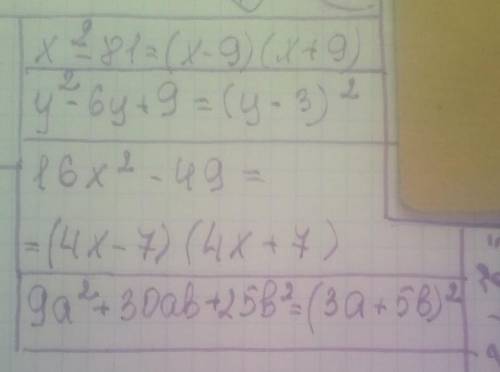 x² - 81 = (x - 9)(x + 9)
y² - 6y + 9 = (y - 3)²
16x² - 49 =
= (4x - 7)(4x + 7)
9a² + 30ab + 25b² = (3a + 5b)²